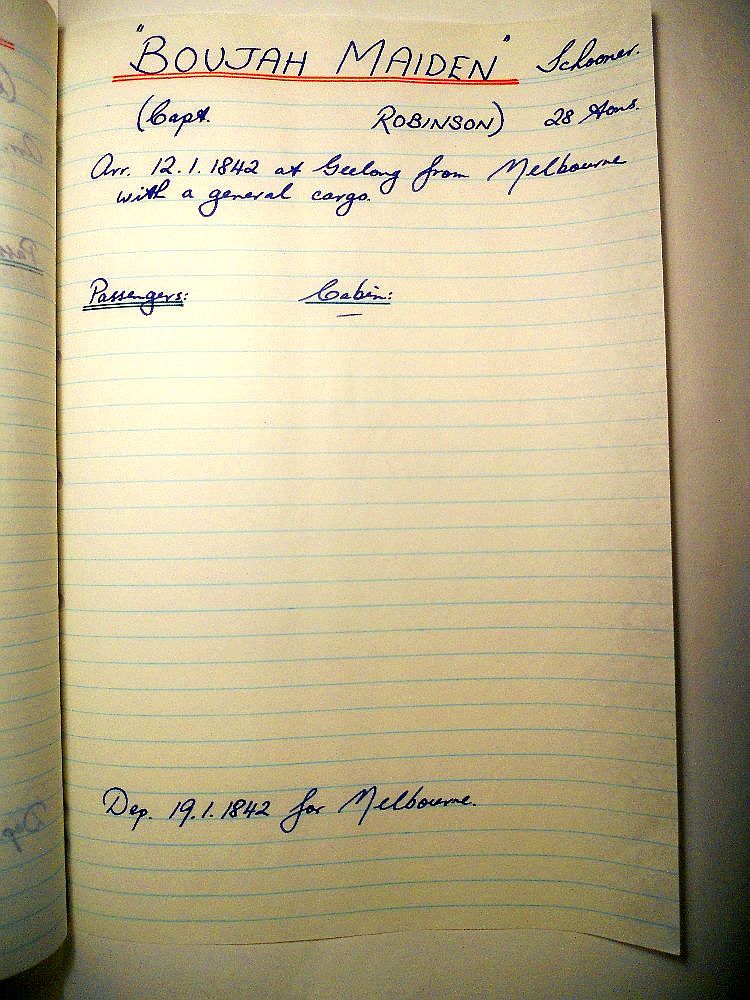 "BOUJAH MAIDEN" Schooner.
(Capt. ROBINSON) 28 tons.
Arr. 12.1.1842 at Geelong from Melbourne
with a general cargo.
Passengers: Cabin:
—
Dep. 19.1.1842 for Melbourne.